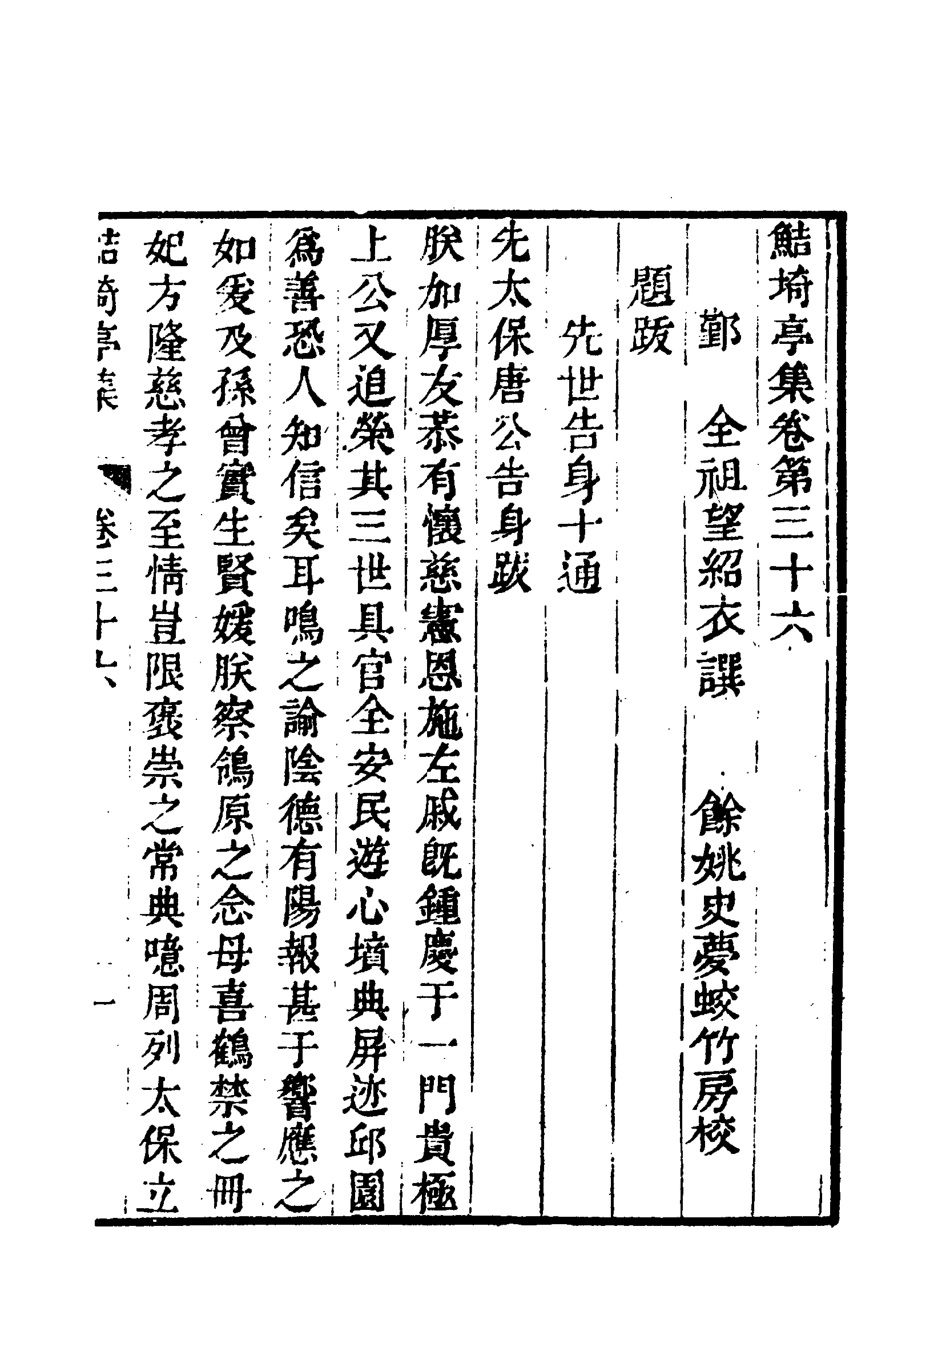 鮚埼亭集卷第三十六
鄞　全祖望紹衣譔　餘姚史夢蛟竹房校
題跋
先世告身十通
先太保唐公告身跋
朕加厚友恭有懷慈憲恩施左戚既鍾慶于一門貴極
上公又追榮其三世具官全安民遊心墳典屏迹邱園
爲善恐人知信矣耳鳴之諭陰德有陽報甚于響應之
如爰及孫曾實生賢媛朕察鴒原之念母喜鶴禁之冊
妃方隆慈孝之至情豈限褒崇之常典噫周列太保立
鮚埼亭集　卷三十六　一